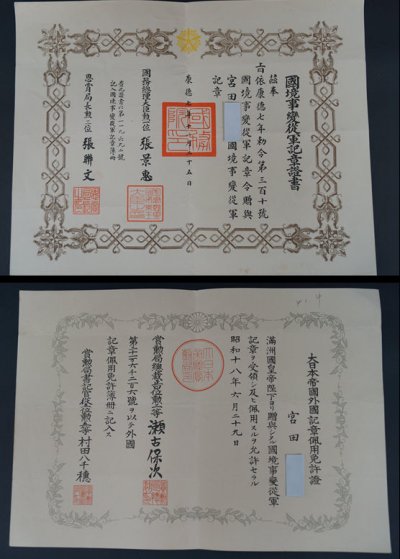 國境事變從軍記章證書
茲奉
上旨依康德七年勅令第三百十號
國境事變從軍記章令贈與
宮田 國境事變從軍
記章
康德七年十一月二十五日
國務總理大臣勳一位 張景惠
記入國境事變從軍記章簿冊
恩賞局長勳二位 張聯文
大日本帝國外國記章佩用免許證
宮田
滿洲國皇帝陛下ヨリ贈與シタル國境事變從軍
記章ヲ受領シ及ヒ佩用スルヲ允許セラル
昭和十八年六月二十九日
賞勳局總裁 瀨古保次
第二十二万六千二百六號ヲ以テ外國
記章佩用免許簿冊ニ記入ス
賞勳局書記官 村田八千穗